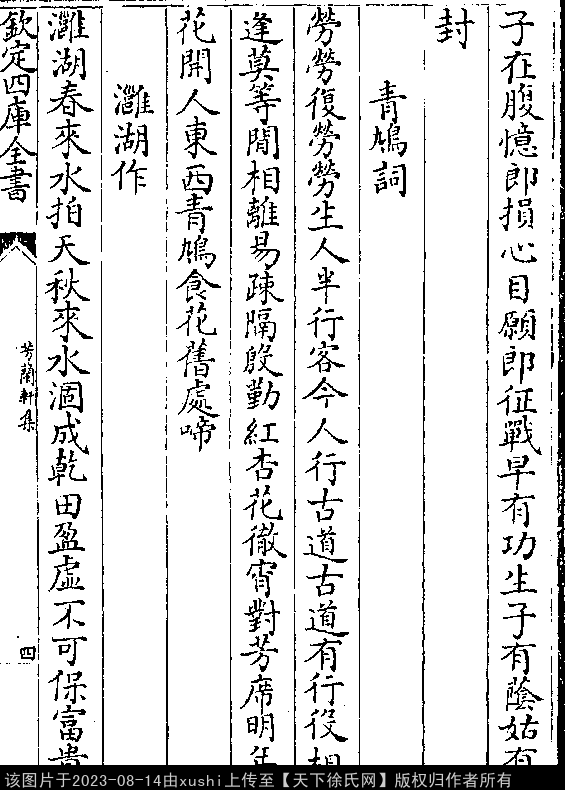 子在腹憶郎損心目願郎征戰早有功生子有蔭姑有
封
青鳩詞
勞勞復勞勞生人半行客今人行古道古道有行役相
逢莫等閒相離易疎隔殷勤紅杏花徹宵對芳席明年
花開人東西青鳩食花舊處啼
灉湖作
灉湖春來水拍天秋來水涸成乾田盈虛不可保富貴
欽定四庫全書
芳蘭軒集
四
该图片于2023-08-14由xushi上传至【天下徐氏网】版权归作者所有